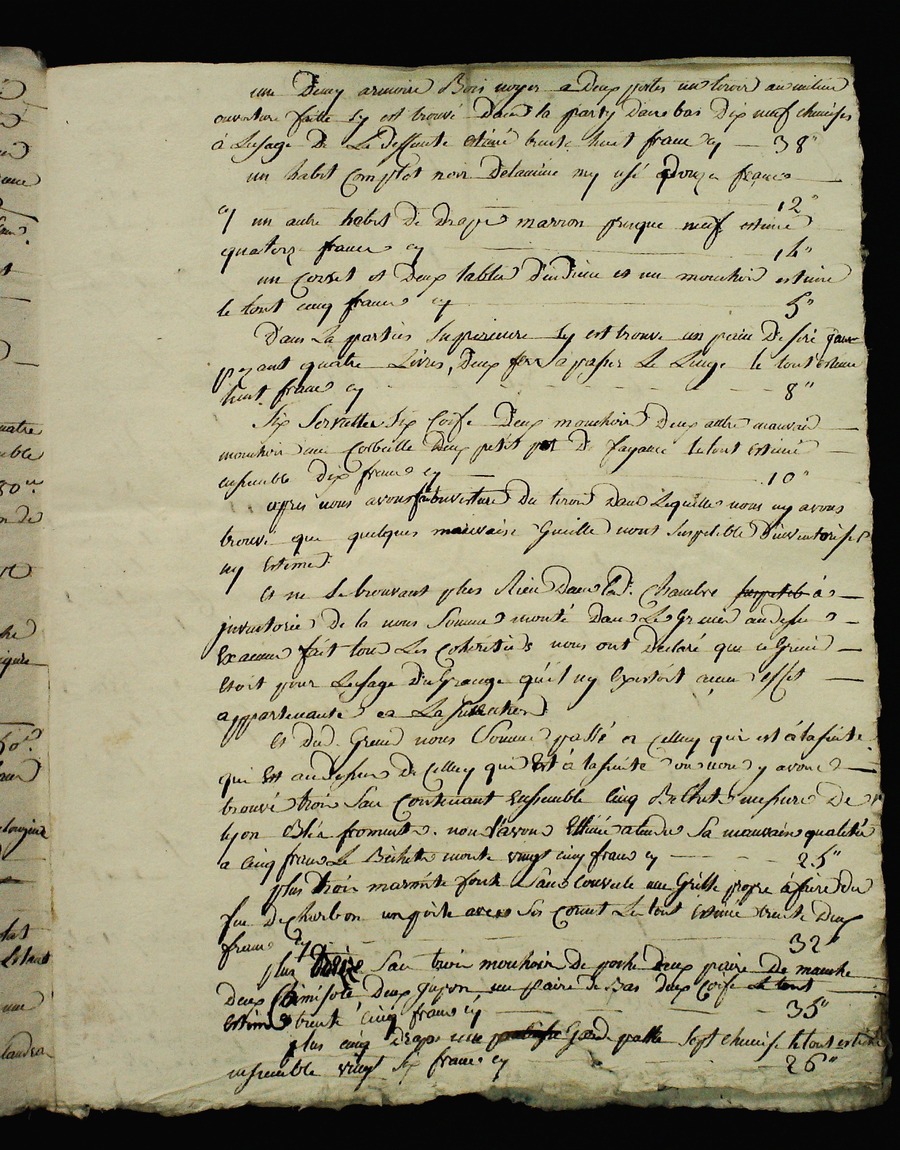 un Demy armoire Bois noyer a Deux portes un tiroir au milieu
ouverture faitte Ey est trouvé Dans la party Dans bas Dix neuf chemises
à Lusage De La Deffunte estimé trente huit franc cy — 38"
un habit Complet noir Detamine my usé a Douze francs
12"
cy un autre habit De Drape marron presque neuf estimé
quatorze franc cy 14"
un Corset et Deux tablier D'indienne et un mouchoir estimé
le tout cinq francs cy 5"
Dans La parties Superieure Ey est trouve un pain De Siré jaune
pezant quatre Livres, Deux fer a passer Le Linge le tout estimé
huit franc cy 8"
Six Serviettes Six Coife Deux mouchoir Deux autre mauvais
mouchoir une Corbeille Deux petit pot De fayance le tout estimé
ensemble Dix franc cy 10"
apres nous avons fait ouverture Du tiroir Dans Lequelle nous ny avons
trouve que quelques mauvaise Gueille nont Suseptible D'inventorise
ny Estimé
Et ne Se trouvant plus Rien Dans lad. Chambre à
inventorié de la nous Somme monté Dans Le Grenier audessu
Exacum fait tous Les Coheritiers nous ont Declaré que ce Grenié
Etoit pour Lusage Du Grange qu'il ny Existoit aucun effet
appartenante a La Succession
Et Dud. Grenié nous Somme passé a Celluy qui est à la suite
qui Est audessus De Celluy qui Est à la suite ou nous y avons
trouvé trois Sac Contenant Ensemble Cinq Bichets mesure De
lyon Blé froment. nous l'avons Estimé atendu Sa mauvaise qualité
a Cinq franc Le Bichet monte vingt cinq franc cy 25"
plus trois marmite fonte Sans Couvercle une Grille propre à faire du
feu De charbon un poile avec Ses Cornet Le tout estimé trente Deux
franc cy 32"
plus Sac trois mouchoir De poche Deux paire De manche
Deux Camisole, Deux jupon une paire De Bas Deux Coife Le tout
estimé trente cinq franc cy 35"
plus cinq Draps une Garde paille Sept chemise le tout estimé
ensemble vingt Six franc cy 26"